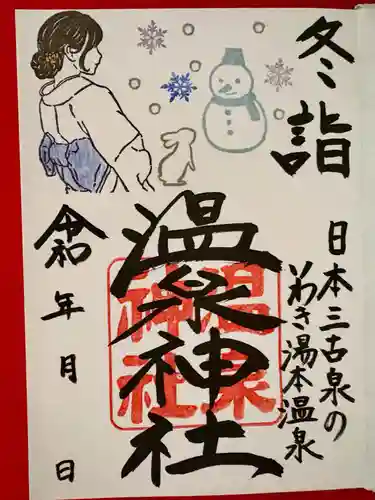 冬詣
日本三古泉の
いわき湯本温泉
温泉神社
温泉
神社
令和
年
月
日